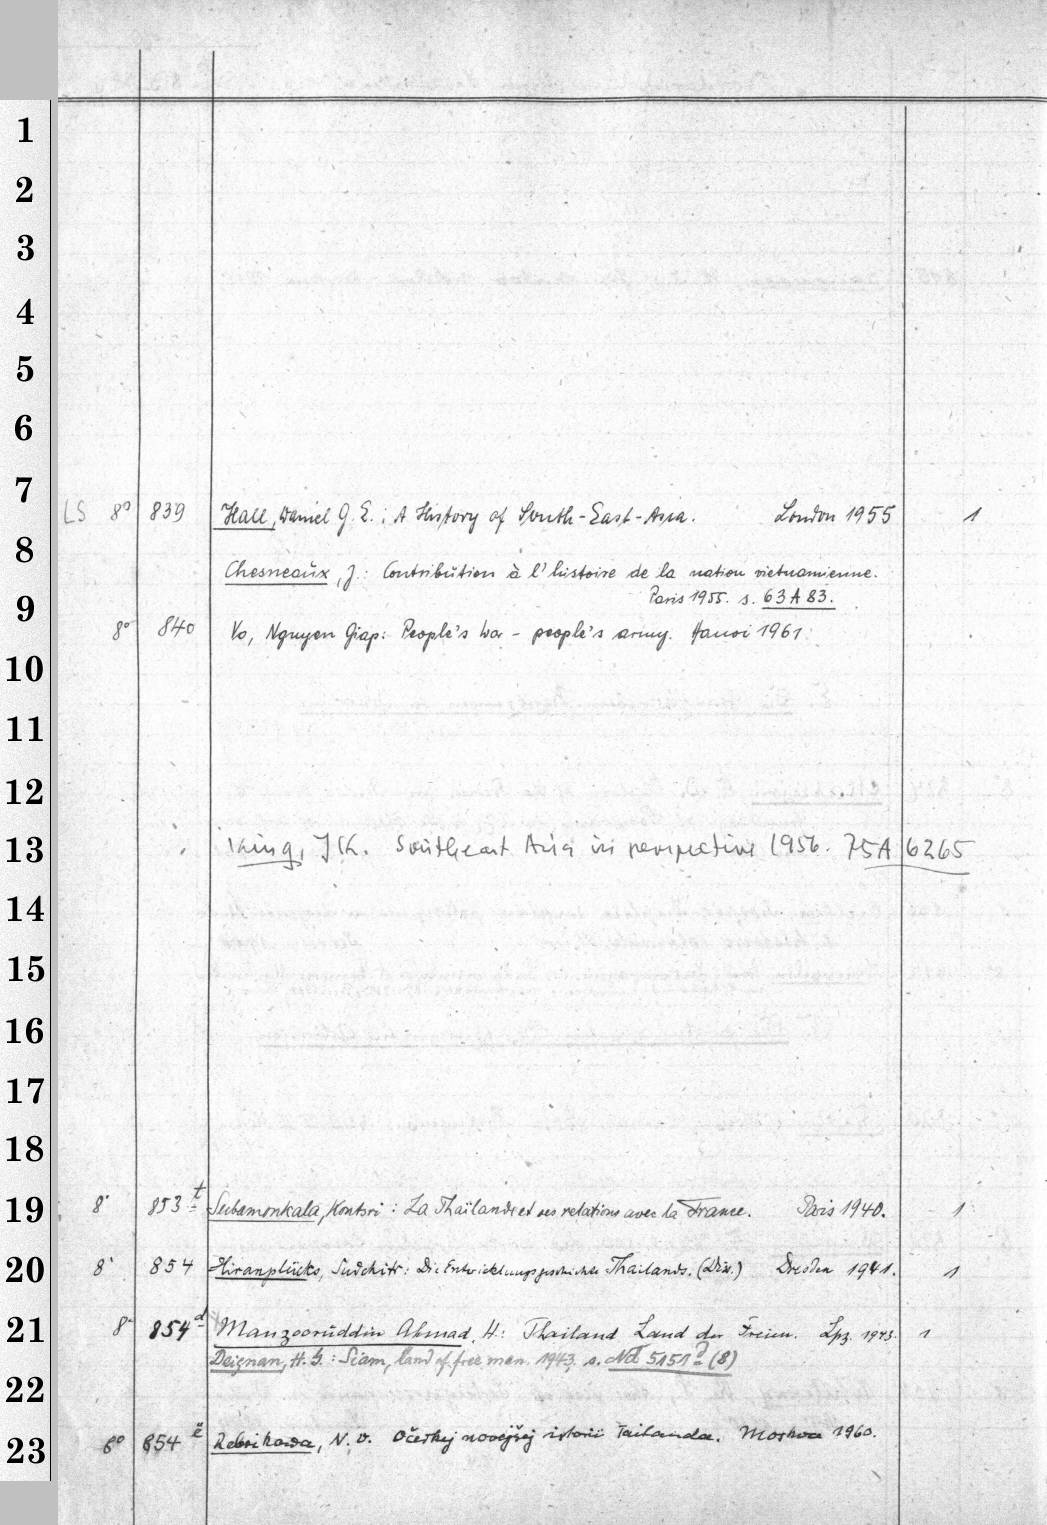 1
2
3
4
5
6
7
LS 8° 839 Hall, Daniel G. E.: A History of South-East-Asia. London 1955 1
8
Chesneaux, J.: Contribution à l'histoire de la nation vietnamienne.
Paris 1955. s. 63 A 83.
9
8° 840 Vo, Nguyen Giap: People's War - people's army. Hanoi 1961.
10
11
12
13
King, J K. Southeast Asia in perspective 1956. 75A 6265
14
15
16
17
18
19
8° 853 t Subamonkala, Kontsri: La Thaïlande et ses relations avec la France. Paris 1940. 1
20
8° 854 Hiranpluks, Sudchitr: Die Entwicklungsgeschichte Thailands. (Diss.) Dresden 1941. 1
21
8° 854 d Manzooruddin Ahmad, H.: Thailand Land der Freien. Lpz. 1943. 1
Deignan, H. G.: Siam, land of free men. 1943. s. 5151 (8)
22
23
8° 854 e Rebrikowa, N. V. Očerkej novejšej istorii Tailanda. Moskva 1960.